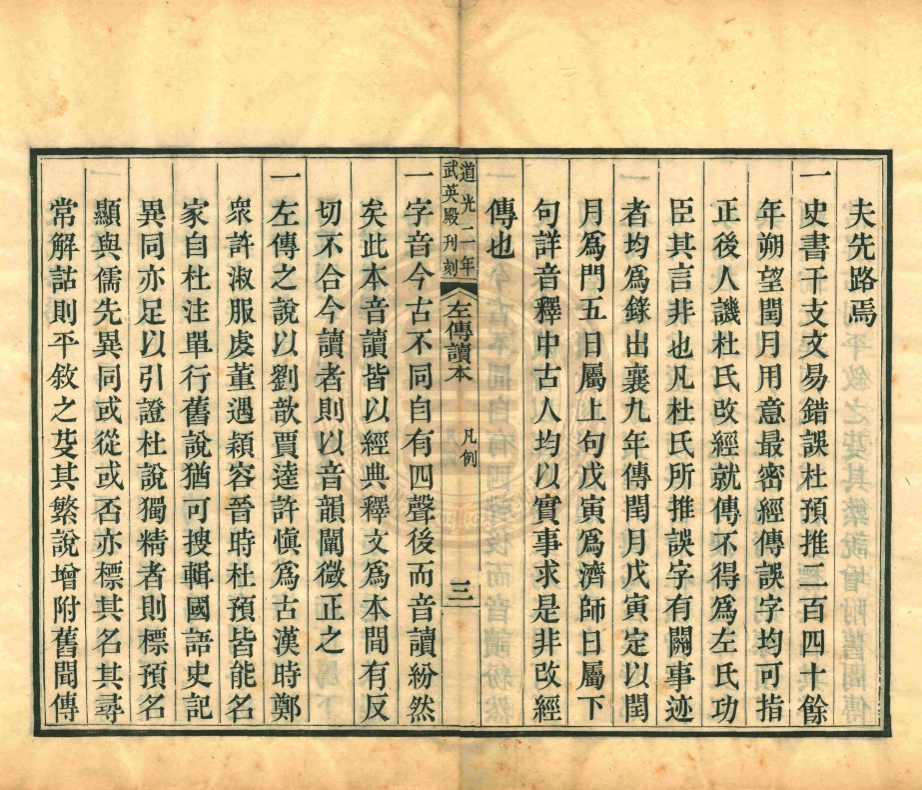 夫先路焉
一史書干支文易錯誤杜預推二百四十餘
年朔望閏月用意最密經傳誤字均可指
正後人譏杜氏改經就傳不得爲左氏功
臣其言非也凡杜氏所推誤字有關事迹
者均爲錄出襄九年傳閏月戊寅定以閏
月爲門五日屬上句戊寅爲濟師日屬下
句詳音釋中古人均以實事求是非改經
傳也
道光二年
武英殿刊刻
左傳讀本
凡例
三
一字音今古不同自有四聲後而音讀紛然
矣此本音讀皆以經典釋文爲本間有反
切不合今讀者則以音韻闡微正之
一左傳之說以劉歆賈逵許愼爲古漢時鄭
衆許淑服虔董遇潁容晉時杜預皆能名
家自杜注單行舊說猶可搜輯國語史記
異同亦足以引證杜說獨精者則標預名
顯與儒先異同或從或否亦標其名其尋
常解詁則平敘之芟其繁說增附舊聞傳